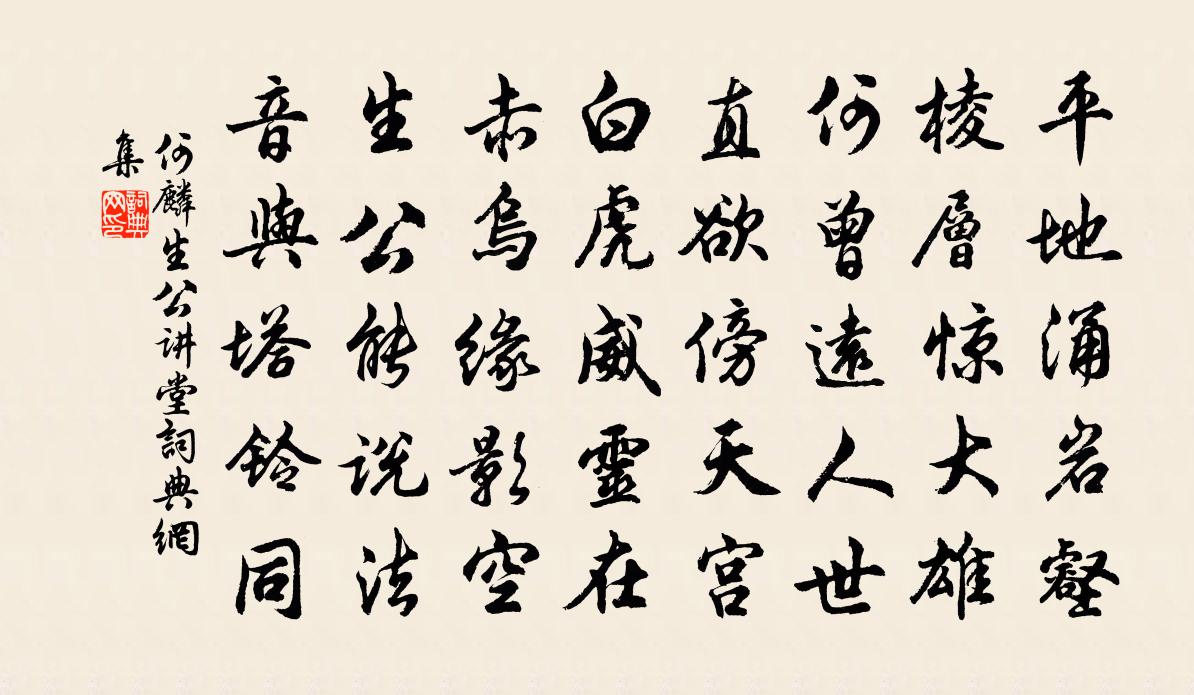 平地涌岩壑
棱層惊大雄
何曾遠人世
直欲傍天宫
白虎威靈在
赤烏緣影空
生公能説法
音與塔鈴同
何麟生公讲堂詞典網
集
詞典
网印